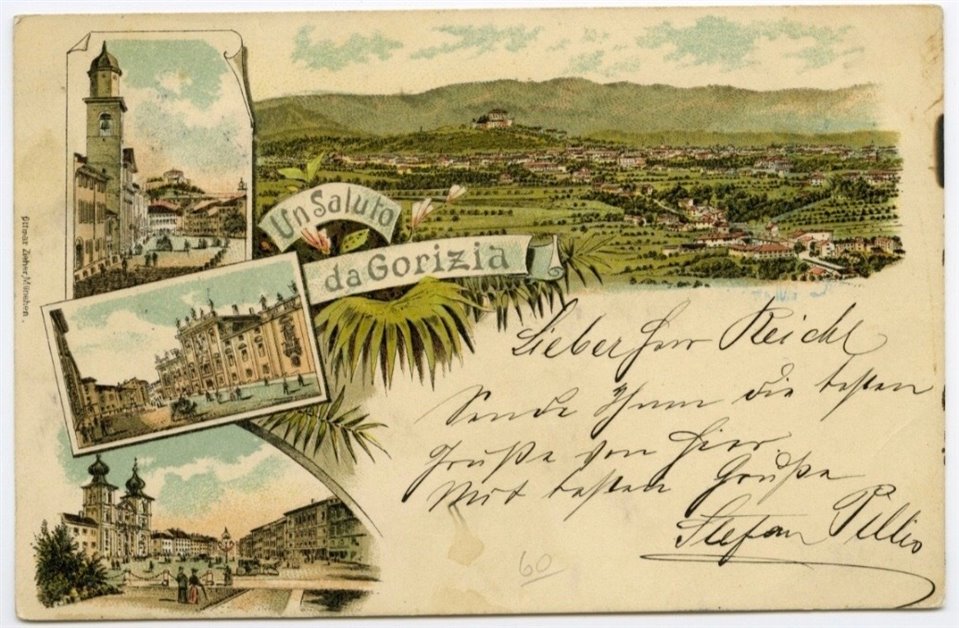 Un Saluto
da Gorizia
Lieber Herr Reichl
Sende Ihnen die besten
Grüße von hier.
Mit besten Grüße
Stefan
60
Ottmar Zieher, München.